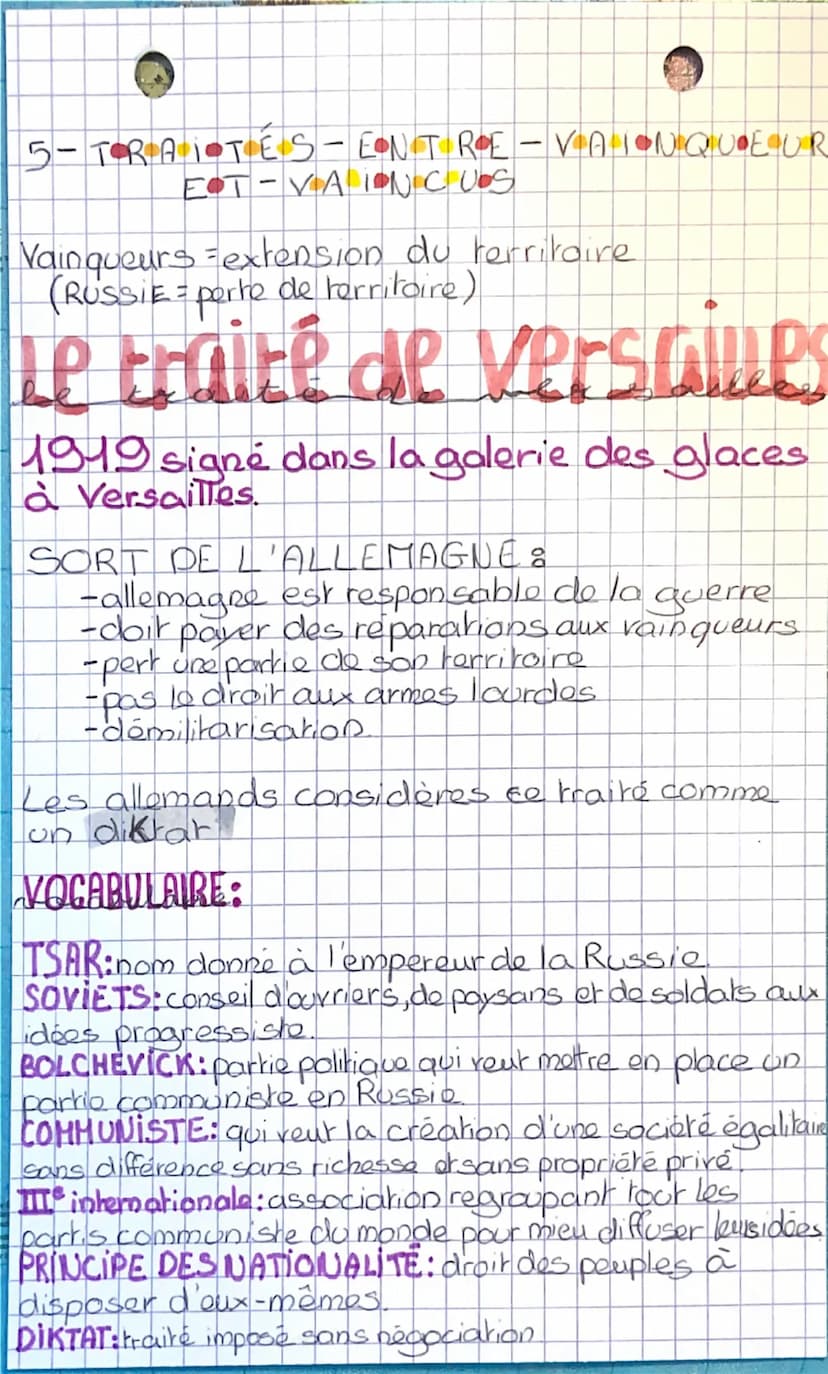 5- TRAITÉS - ENTRE - VAINQUEUR
ET - VAINCUS
Vainqueurs = extension du territoire
(RUSSIE = perte de territoire)
Le traité de Versailles
le traité de versailles
1919 signé dans la galerie des glaces
à Versailles.
SORT DE L'ALLEMAGNE :
-allemagne est responsable de la guerre
-doit payer des réparations aux vainqueurs
-pert une partie de son territoire
-pas le droit aux armes lourdes
-démilitarisation
Les allemands considères ce traité comme
un diktat
VOCABULAIRE:
TSAR: nom donné à l'empereur de la Russie.
SOVIETS: conseil d'ouvriers, de paysans et de soldats aux
idées progressiste.
BOLCHEVICK: partie politique qui veut mettre en place un
partie communiste en Russie
COMMUNISTE: qui veut la création d'une société égalitaire
sans différence sans richesse et sans propriété privé.
IIIe internationale: association regroupant tout les
partis communiste du monde pour mieu diffuser leurs idées
PRINCIPE DES NATIONALITÉ: droit des peuples à
disposer d'eux-mêmes.
DIKTAT: traité imposé sans négociation